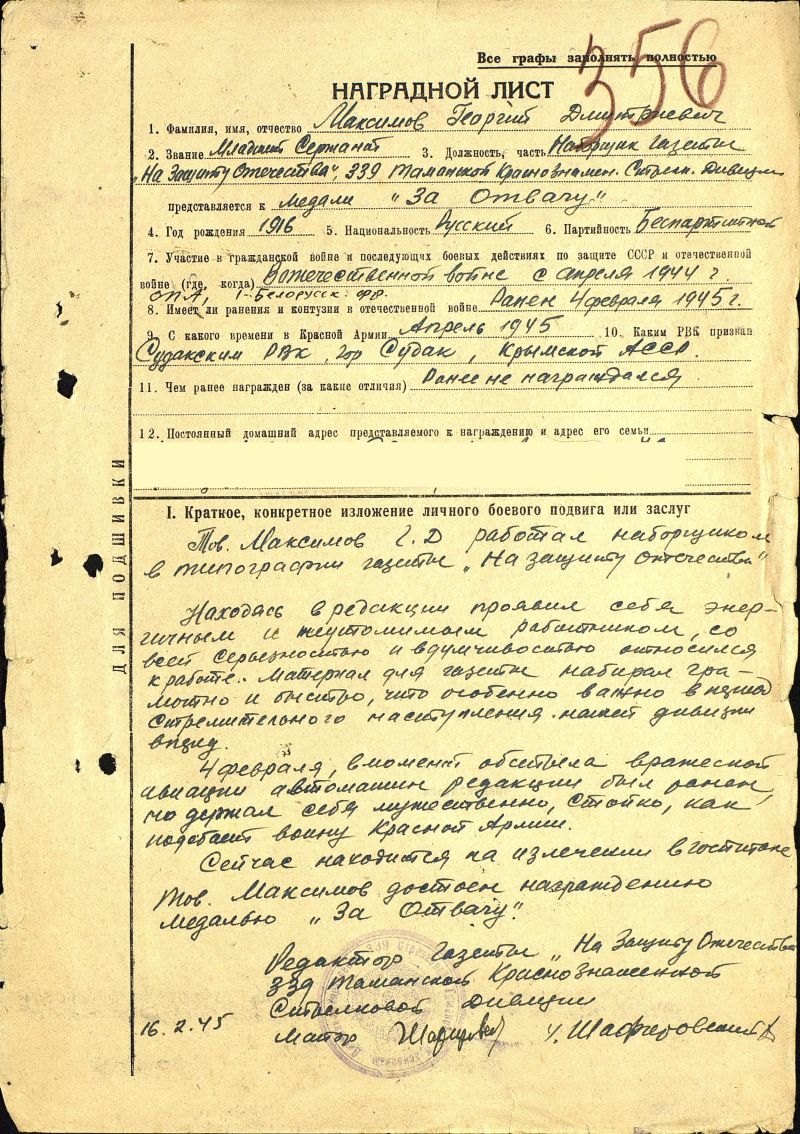 356
Все графы заполнять полностью
НАГРАДНОЙ ЛИСТ
1. Фамилия, имя, отчество Максимов Георгий Дмитриевич
2. Звание Младший Сержант 3. Должность, часть Наборщик газеты
„На Защиту Отечества", 339 Таманской Краснознамен. Стрелк. Дивизии
представляется к медали „За Отвагу"
4. Год рождения 1916 5. Национальность Русский 6. Партийность Беспартийный
7. Участие в гражданской войне и последующих боевых действиях по защите СССР и отечественной
войне (где, когда) В отечественной войне с апреля 1944 г
ОПА, 1-Белорусск. фр.
8. Имеет ли ранения и контузии в отечественной войне Ранен 4 февраля 1945 г.
9. С какого времени в Красной Армии Апрель 1945 10. Каким РВК призван
Судакским РВК, гор Судак, Крымской АССР.
11. Чем ранее награжден (за какие отличия) Ранее не награждался
12. Постоянный домашний адрес представляемого к награждению и адрес его семьи
ДЛЯ ПОДШИВКИ
I. Краткое, конкретное изложение личного боевого подвига или заслуг
Тов. Максимов Г. Д работал наборщиком
в типографии газеты „На защиту Отечества"
Находясь в редакции проявил себя энер-
гичным и неутомимым работником, со
всей серьезностью и вдумчивостью относился
к работе. Материал для газеты набирал гра-
мотно и быстро, что особенно важно в период
стремительного наступления нашей дивизии
вперед.
4 февраля, в момент обстрела вражеской
авиации автомашин редакции был ранен,
но держал себя мужественно, стойко, как
подобает воину Красной Армии.
Сейчас находится на излечении в госпитале
Тов. Максимов достоен награждению
медалью „За Отвагу".
Редактор газеты „На Защиту Отечества
339 Таманской Краснознаменной
Стрелковой Дивизии
16.2.45 Майор